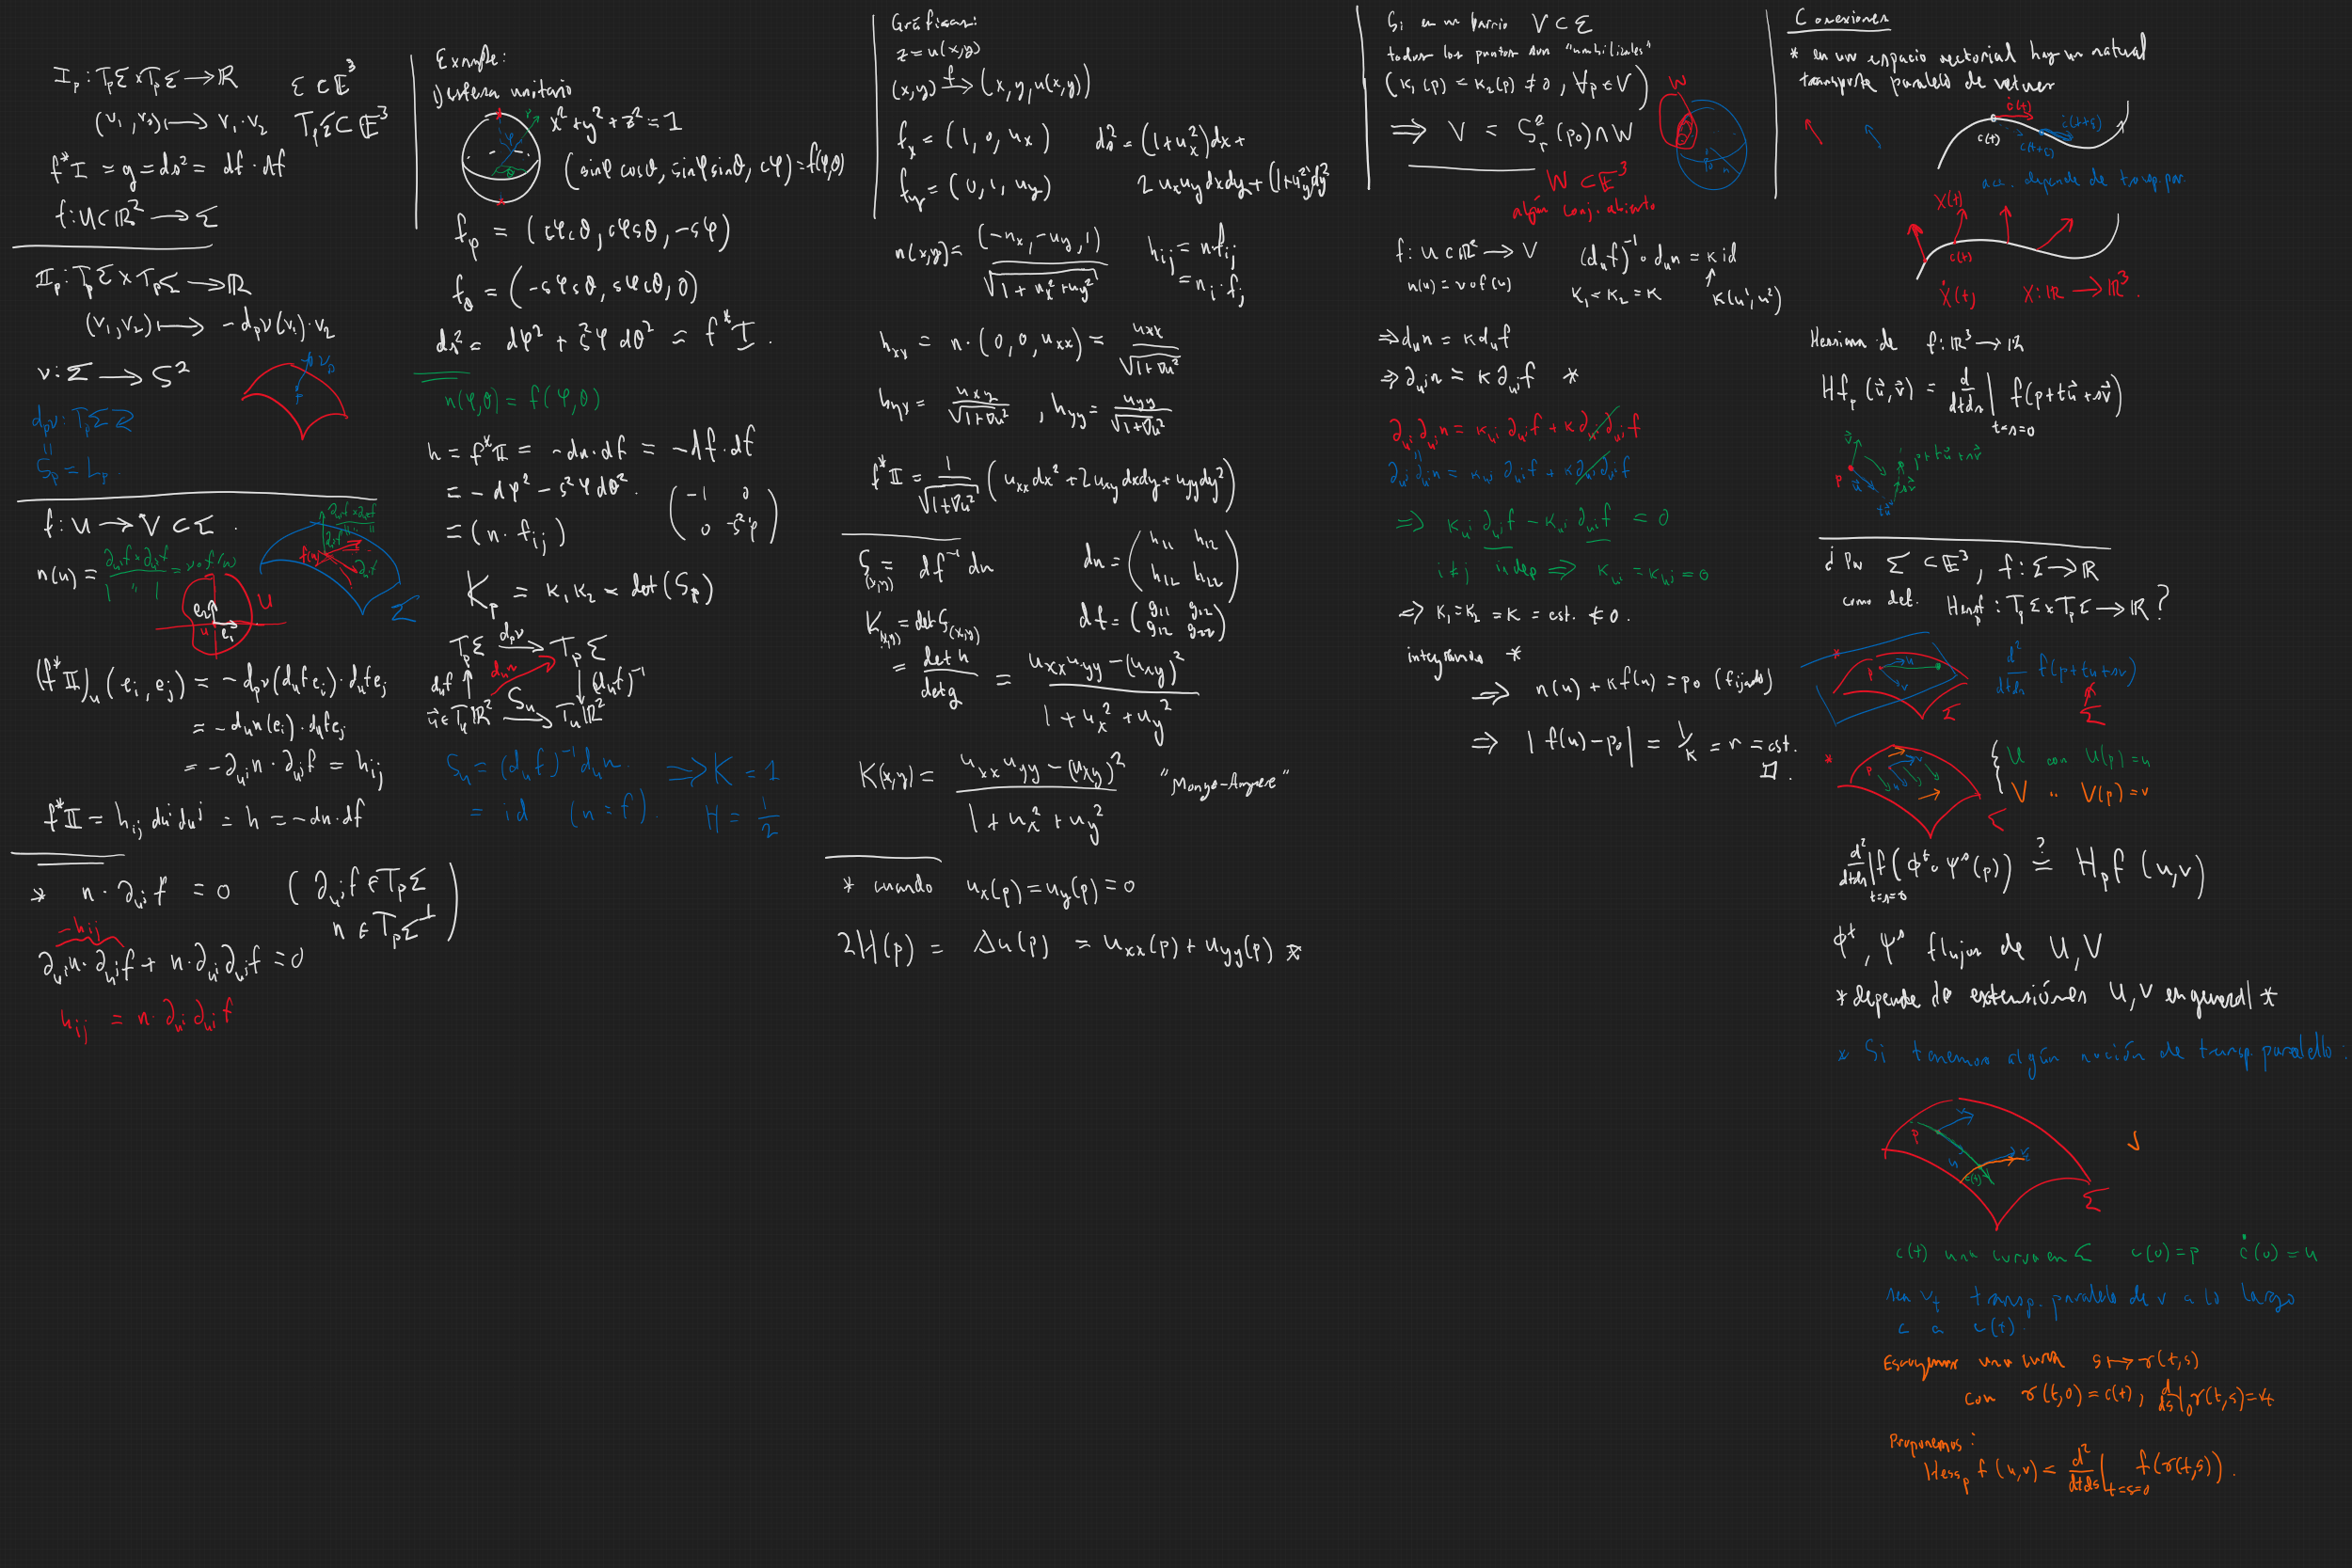 I_p : T_pΣ × T_pΣ → ℝ    Σ ⊂ 𝔼³
(v₁, v₂) ↦ v₁·v₂    T_pΣ ⊂ 𝔼³
f*I = g = ds² = df·df
f: U ⊂ ℝ² → Σ
II_p : T_pΣ × T_pΣ → ℝ
(v₁, v₂) ↦ -d_pν(v₁)·v₂
ν: Σ → S²
ν_p
p
d_pν : T_pΣ
S_p = L_p.
f: U → V ⊂ Σ.
n(u) = ∂_{u^i}f × ∂_{u^j}f / | " | = ν∘f(u)
f(u)
Σ
U
e₂
u e₁
(f*II)_u (e_i, e_j) = -d_pν(d_uf e_i)·d_uf e_j
= -d_un(e_i)·d_uf e_j
= -∂_{u^i}n·∂_{u^j}f = h_ij
f*II = h_ij du^i du^j = h = -dn·df
* n·∂_{u^i}f = 0    (∂_{u^i}f ∈ T_pΣ
n ∈ T_pΣ^⊥)
-h_ij
∂_{u^i}n·∂_{u^j}f + n·∂_{u^i}∂_{u^j}f = 0
h_ij = n·∂_{u^i}∂_{u^j}f
Example:
1) esfera unitario
x² + y² + z² = 1
(sinφ cosθ, sinφ sinθ, cφ) = f(φ,θ)
f_φ = (cφcθ, cφsθ, -sφ)
f_θ = (-sφsθ, sφcθ, 0)
ds² = dφ² + s²φ dθ² = f*I.
n(φ,θ) = f(φ,θ)
h = f*II = -dn·df = -df·df
= -dφ² - s²φdθ².    (-1 0
= (n·f_ij)    0 -s²φ)
K_p = κ₁κ₂ = det(S_p)
T_pΣ →^{d_pν} T_pΣ
d_uf ↑ d_un ↓ (d_uf)⁻¹
u⃗ ∈ T_uℝ² →^{S_u} T_uℝ²
S_u = (d_uf)⁻¹d_un.    ⇒ K = 1
= id (n = f).    H = 1/2
Gráficas:
z = u(x,y)
(x,y) →^f (x, y, u(x,y))
f_x = (1, 0, u_x)    ds² = (1+u_x²)dx +
f_y = (0, 1, u_y)    2u_xu_ydxdy + (1+u_y²)dy²
n(x,y) = (-u_x, -u_y, 1) / √(1 + u_x² + u_y²)    h_ij = n·f_ij
= n_i·f_j
h_xx = n·(0, 0, u_xx) = u_xx / √(1+∇u²)
h_xy = u_xy / √(1+∇u²) , h_yy = u_yy / √(1+∇u²)
f*II = 1/√(1+∇u²) (u_xx dx² + 2u_xy dxdy + u_yy dy²)
S_(x,y) = df⁻¹ dn    dn = (h₁₁ h₁₂
h₁₂ h₂₂)
K_(x,y) = det S_(x,y)    df = (g₁₁ g₁₂
g₁₂ g₂₂)
= det h / det g = (u_xx u_yy - (u_xy)²) / (1 + u_x² + u_y²)
K(x,y) = (u_xx u_yy - (u_xy)²) / (1 + u_x² + u_y²)    "Monge-Ampere"
* cuando u_x(p) = u_y(p) = 0
2H(p) = Δu(p) = u_xx(p) + u_yy(p) *
Si en un barrio V ⊂ Σ
todos los puntos son "umbilicales"
(κ₁(p) = κ₂(p) ≠ 0, ∀p ∈ V)
W
⇒ V = S²_r(p₀) ∩ W
p₀ r
W ⊂ 𝔼³
algún conj. abierto
f: U ⊂ ℝ² → V    (d_uf)⁻¹ ∘ d_un = κ id
n(u) = ν∘f(u)    κ₁ = κ₂ = κ    κ(u¹, u²)
⇒ d_un = κ d_uf
⇒ ∂_{u^i}n = κ ∂_{u^i}f *
∂_{u^j}∂_{u^i}n = κ_{u^j} ∂_{u^i}f + κ∂_{u^j}∂_{u^i}f
∂_{u^i}∂_{u^j}n = κ_{u^i} ∂_{u^j}f + κ∂_{u^i}∂_{u^j}f
⇒ κ_{u^i} ∂_{u^j}f - κ_{u^j} ∂_{u^i}f = 0
i≠j indep ⇒ κ_{u^i} = κ_{u^j} = 0
⇒ κ₁ = κ₂ = κ = cst. ≠ 0.
integramos *
⇒ n(u) + κf(u) = p₀ (fijado)
⇒ |f(u) - p₀| = 1/κ = r = cst.
Conexiones
* en un espacio vectorial hay un natural
transporte paralelo de vetores
ċ(t)
c(t) c(t+s) ċ(t+s)
acc. depende de transp par.
X(t)
c(t)
Ẋ(t)    X: ℝ → ℝ³.
Hessiana de f: ℝ³ → ℝ
Hf_p(u⃗, v⃗) = d/dtds | f(p + tu⃗ + sv⃗)
t=s=0
v⃗
p u⃗ tu⃗ sv⃗ p + tu⃗ + sv⃗
¿ Para Σ ⊂ 𝔼³, f: Σ → ℝ
como def. Hess_pf : T_pΣ × T_pΣ → ℝ ?
* p u v Σ
d²/dtds f(p + tu + sv)
Σ
* p u v Σ
U con U(p) = u
V " V(p) = v
d²/dtds |_{t=s=0} f(φ^t ∘ ψ^s(p)) ≟ H_pf(u,v)
φ^t, ψ^s flujos de U, V
* depende de extensiónes U, V en general *
* Si tenemos algún noción de transp paralello:
p v u c(t) v_t Σ
V
c(t) una curva en Σ    c(0) = p    ċ(0) = u
sea v_t transp. paralelo de v a lo largo
c a c(t).
Escogemos una curva s ↦ γ(t,s)
con γ(t,0) = c(t), d/ds|₀ γ(t,s) = v_t
Proponemos:
Hess_p f(u,v) = d²/dtds |_{t=s=0} f(γ(t,s)).